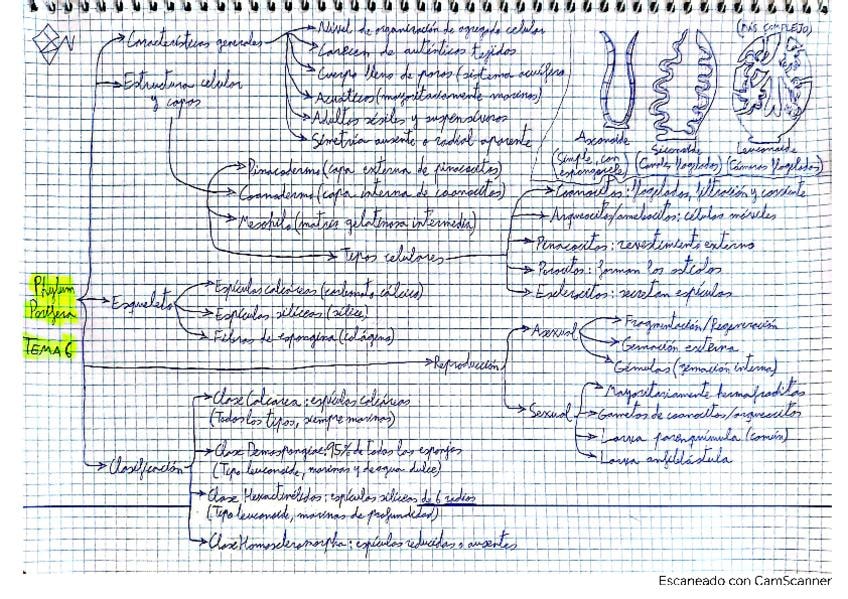 N
Características generales
Nivel de organización de agregado celular
Carecen de auténticos tejidos
Cuerpo lleno de poros (sistema acuífero
Acuáticos (mayoritariamente marinos)
Adultos sésiles y suspensívoros
Simetría ausente o radial aparente
(MÁS COMPLEJO)
Asconoide
(Simple, con espongocele)
Siconoide
(Canales flagelados)
Leuconoide
(Cámaras flageladas)
Estructura celular
y capas
Pinacodermo (capa externa de pinacocitos)
Coanodermo (capa interna de coanocitos)
Mesohilo (matriz gelatinosa intermedia)
Tipos celulares
Coanocitos: flagelados, filtración y corriente
Arqueocitos/amebocitos: células móviles
Pinacocitos: revestimiento externo
Porocitos: forman los ostiolos
Esclerocitos: secretan espículas
Phylum
Porifera
TEMA 6
Esqueleto
Espículas calcáreas (carbonato cálcico)
Espículas silíceas (sílice)
Fibras de espongina (colágeno)
Reproducción
Asexual
Fragmentación/Regeneración
Gemación externa
Gémulas (gemación interna)
Sexual
Mayoritariamente hermafroditas
Gametos de coanocitos/arqueocitos
Larva parenquímula (común)
Larva anfiblástula
Clasificación
Clase Calcarea: espículas calcáreas
(Todos los tipos, siempre marinas)
Clase Demospongiae: 95% de todas las esponjas
(Tipo leuconoide, marinas y de agua dulce)
Clase Hexactinélidos: espículas silíceas de 6 radios
(Tipo leuconoide, marinas de profundidad)
Clase Homoscleromorpha: espículas reducidas o ausentes
Escaneado con CamScanner